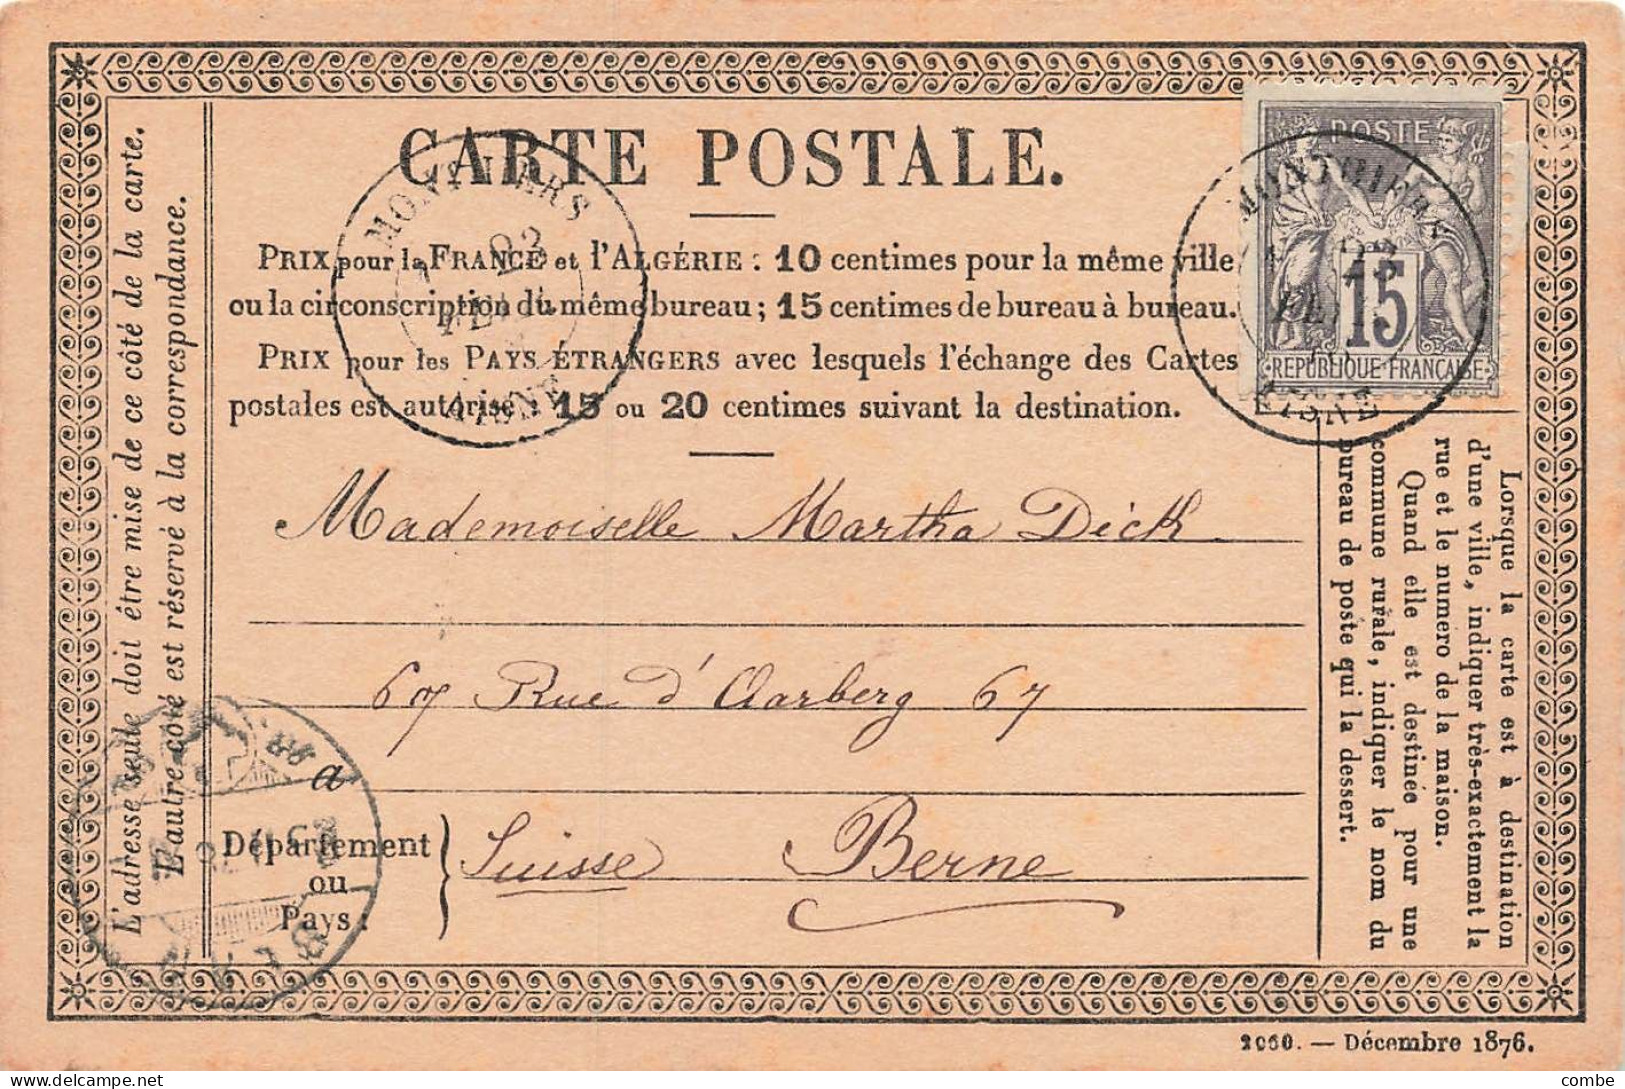 CARTE POSTALE.
POSTE
15
REPUBLIQUE FRANCAISE
AISNE
AISNE
PRIX pour la FRANCE et l'ALGÉRIE : 10 centimes pour la même ville
ou la circonscription du même bureau ; 15 centimes de bureau à bureau.
PRIX pour les PAYS ÉTRANGERS avec lesquels l'échange des Cartes
postales est autorisé : 15 ou 20 centimes suivant la destination.
Mademoiselle Martha Dick
67 Rue d'Aarberg 67
a
Département
ou
Pays.
Suisse Berne
L'adresse seule doit être mise de ce côté de la carte.
L'autre côté est réservé à la correspondance.
Lorsque la carte est à destination
d'une ville, indiquer très-exactement la
rue et le numero de la maison.
Quand elle est destinée pour une
commune rurale, indiquer le nom du
bureau de poste qui la dessert.
2060. — Décembre 1876.
delcampe.net
combe